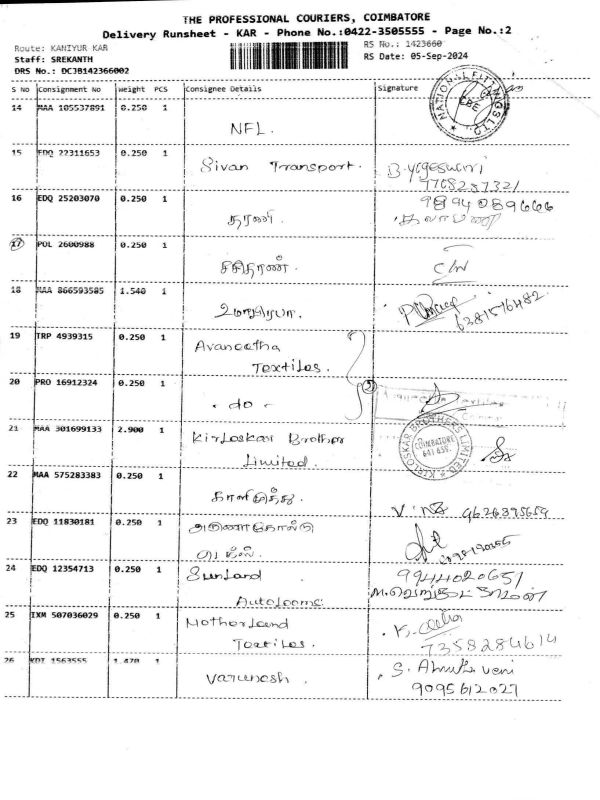 THE PROFESSIONAL COURIERS, COIMBATORE
Delivery Runsheet - KAR - Phone No.:0422-3505555 - Page No.:2
Route: KANIYUR KAR
RS No.: 1423660
Staff: SREKANTH
RS Date: 05-Sep-2024
DRS No.: DCJB142366002
S No Consignment No Weight PCS Consignee Details Signature
NATIONAL FITTINGS LTD.
14 MAA 105537891 0.250 1
NFL.
15 EDQ 22311653 0.250 1
Sivan Transport.
7708287321
16 EDQ 25203070 0.250 1 9894089666
தாரணி.
17 POL 2600988 0.250 1
சசிதரண்.
18 MAA 866593585 1.540 1
6381576482
19 TRP 4939315 0.250 1 Avaneetha
Textiles.
20 PRO 16912324 0.250 1
- do -
21 MAA 301699133 2.900 1 Kirloskar Brother
Limited.
KIRLOSKAR BROTHERS LIMITED
COIMBATORE
641 659.
22 MAA 575283383 0.250 1
காளிமுத்து
9626395659
23 EDQ 11830181 0.250 1
24 EDQ 12354713 0.250 1 Sunland 9944020651
Autolooms.
25 IXM 507036029 0.250 1 Motherland
Textiles. 7358284614
26 KDI 1563555 1.470 1
Varunesh.
9095612027